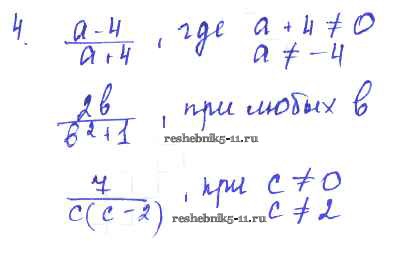 4. a-4 / a+4 , где a + 4 ≠ 0
a ≠ -4
2в / в²+1 , при любых в
reshebnik5-11.ru
7 / c(c-2) , при c ≠ 0
reshebnik5-11.ru c ≠ 2